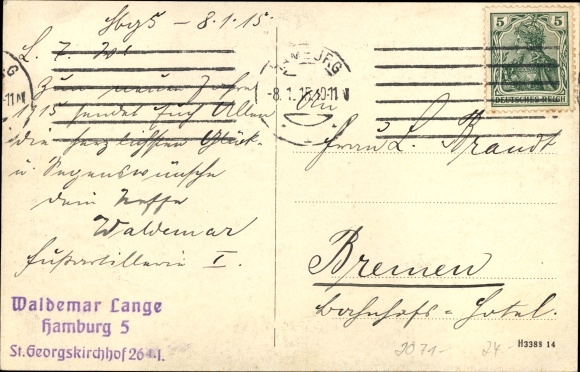 Hbg 5 - 8.1.15.
L.
Zum neuen Jahre
1915 sendet Euch Allen
die herzlichsten Glück-
u. Segenswünsche
dein Neffe
Waldemar
Fußartillerie I.
Waldemar Lange
Hamburg 5
St. Georgskirchhof 26
-8.1.15.10-11V
5 5
DEUTSCHES REICH
An
L. Brandt
Bremen
Bahnhofs-Hotel.
H3388 14
2071-
24-